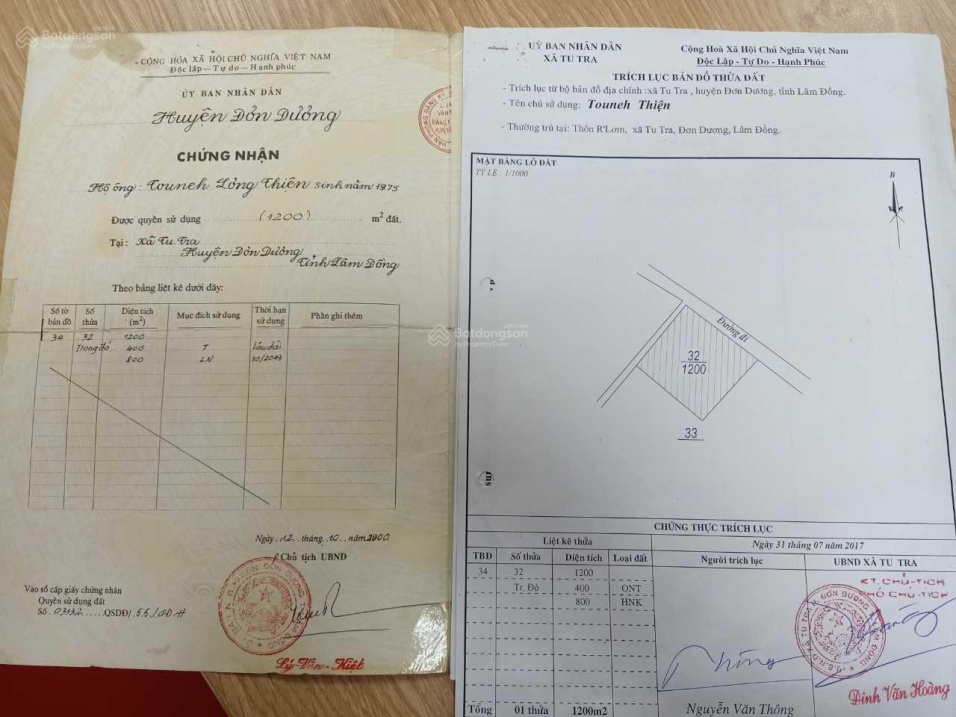 CỘNG HÒA XÃ HỘI CHỦ NGHĨA VIỆT NAM
Độc lập - Tự do - Hạnh phúc
ỦY BAN NHÂN DÂN
Huyện Đơn Dương
CHỨNG NHẬN
Hộ ông: Touneh Lông Thiện sinh năm 1975
Được quyền sử dụng (1200) m² đất.
Tại: Xã Tu Tra
Huyện Đơn Dương
Tỉnh Lâm Đồng
Theo bảng liệt kê dưới đây:
Số tờ bản đồ Số thửa Diện tích (m²) Mục đích sử dụng Thời hạn sử dụng Phần ghi thêm
34 32 1200
Trong đó 400 T lâu dài
800 LN
Ngày 12 tháng 10 năm 2000
Chủ tịch UBND
Vào sổ cấp giấy chứng nhận
Quyền sử dụng đất
Số QSDĐ/
Lý-Văn-Kiệt
Batdongsan
by PropertyGuru
ỦY BAN NHÂN DÂN
XÃ TU TRA
Cộng Hoà Xã Hội Chủ Nghĩa Việt Nam
Độc Lập - Tự Do - Hạnh Phúc
TRÍCH LỤC BẢN ĐỒ THỬA ĐẤT
- Trích lục từ bộ bản đồ địa chính :xã Tu Tra , huyện Đơn Dương, tỉnh Lâm Đồng.
- Tên chủ sử dụng: Touneh Thiện
- Thường trú tại: Thôn R'Lơm, xã Tu Tra, Đơn Dương, Lâm Đồng.
MẶT BẰNG LÔ ĐẤT
TỶ LỆ : 1/1000
B
Đường đi
32
1200
33
CHỨNG THỰC TRÍCH LỤC
Liệt kê thửa
Ngày 31 tháng 07 năm 2017
TBĐ Số thửa Diện tích Loại đất
Người trích lục
UBND XÃ TU TRA
34 32 1200
Tr. Đó 400 ONT
800 HNK
KT. CHỦ-TỊCH
PHÓ CHỦ-TỊCH
Đinh Văn Hoàng
Tổng 01 thửa 1200m2
Nguyễn Văn Thông